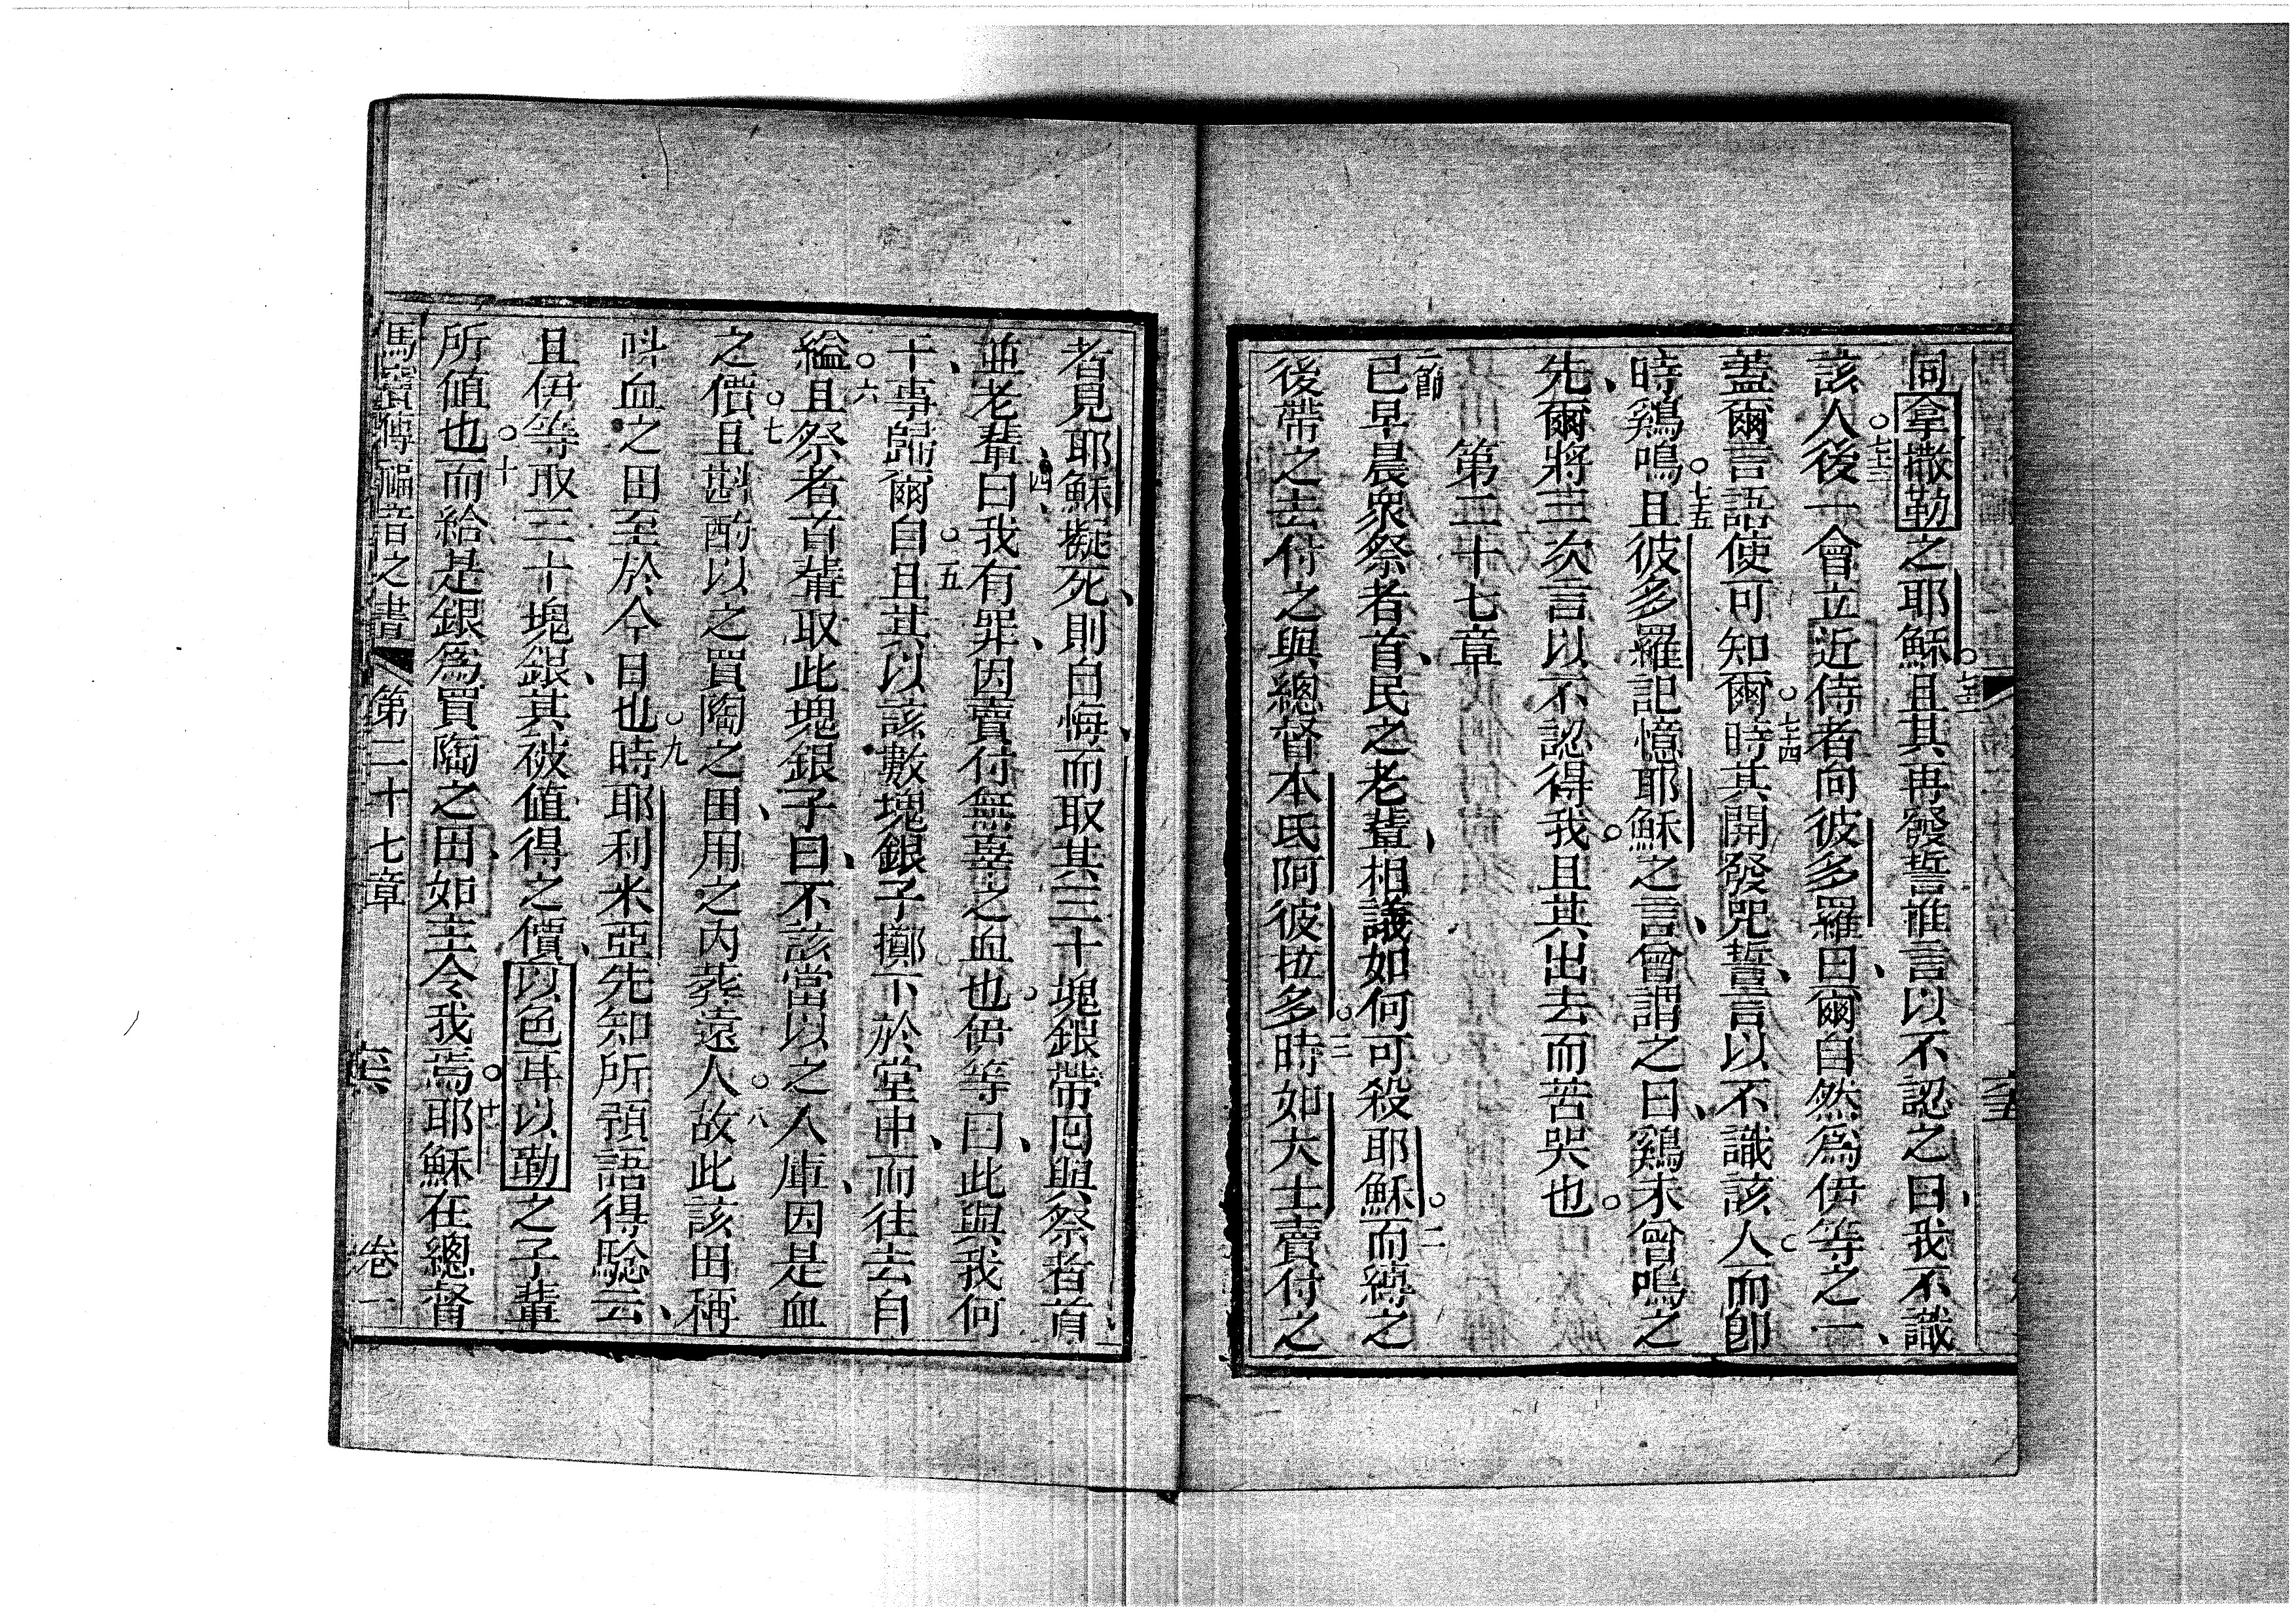 同拿撒勒之耶穌。七二且其再發誓誰言以不認之曰、我不識
該人。七三後一會立近侍者向彼多羅曰、爾自然爲伊等之一、
蓋爾言語使可知爾。七四時其開發咒誓、言以不識該人。而卽
時鷄鳴。七五且彼多羅記憶耶穌之言、曾謂之曰、鷄未曾鳴之
先、爾將三次言以不認得我。且其出去而苦哭也。
第二十七章
一節已早晨衆祭者首、民之老輩、相議如何可殺耶穌。二而縛之
後帶之去付之與總督本氏阿彼拉多。三時如大士賣付之
者見耶穌擬死、則自悔、而取其三十塊銀帶囘與祭者首、
並老輩、四曰我有罪、因賣付無辜之血也。伊等曰、此與我何
干、事歸爾自。五且其以該數塊銀子擲下於堂中、而往去自
縊。六且祭者首輩取此塊銀子曰、不該當以之入庫、因是血
之價。七且斟酌以之買陶之田、用之內葬遠人。八故此該田稱
呌血之田至於今日也。九時耶利米亞先知所預語得騐云、
且伊等取三十塊銀、其被值得之價、以色耳以勒之子輩
所值也。十而給是銀爲買陶之田、如主令我焉。十一耶穌在總督
馬竇傳福音之書 第二十七章 卷一